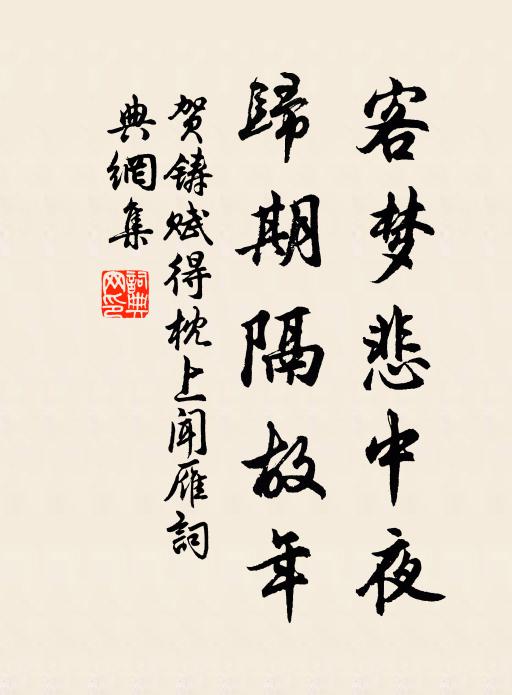 客梦悲中夜
歸期隔故年
贺鑄赋得枕上闻雁詞
典網集
詞典
网印